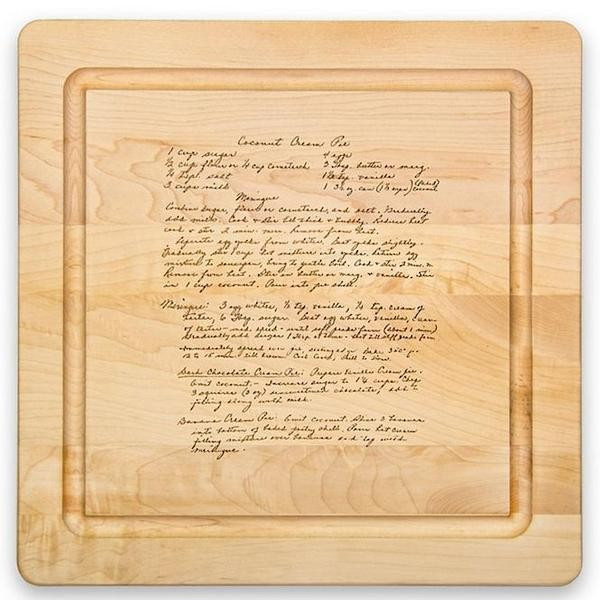 Coconut Cream Pie
1 cup sugar 4 eggs
½ cup flour or ¼ cup cornstarch 3 Tbsp. butter or marg.
¼ tsp. salt 1½ tsp. vanilla
3 cups milk 1 3½ oz. can (1⅓ cups) (flaked) coconut
Meringue
Combine sugar, flour or cornstarch, and salt. Gradually
add milk. Cook & stir till thick & bubbly. Reduce heat
cook & stir 2 min. more. Remove from heat.
Separate egg yolks from whites. Beat yolks slightly.
Gradually stir 1 cup hot mixture into yolks. Return egg
mixture to saucepan, bring to gentle boil. Cook & stir 2 min.
Remove from heat. Stir in butter or marg. & vanilla. Stir
in 1 cup coconut. Pour into pie shell.
Meringue: 3 egg whites, ½ tsp. vanilla, ¼ tsp. cream of
tartar, 6 Tbsp. sugar. Beat egg whites, vanilla, cream
of tartar - med. speed - until soft peaks form (about 1 min)
Gradually add sugar 1 Tbsp at time. Beat till stiff peaks form
Immediately spread over pie, sealing edge. Bake 350° for
12 to 15 min. till brown. Cool.
Dark Chocolate Cream Pie: Prepare Vanilla Cream pie.
Omit coconut. - Increase sugar to 1¼ cups. Chop
3 squares (3 oz) unsweetened chocolate, add to
filling along with milk.
Banana Cream Pie: Omit coconut. Slice 3 bananas
into bottom of baked pastry shell. Pour hot cream
filling mixture over bananas and top with
meringue.